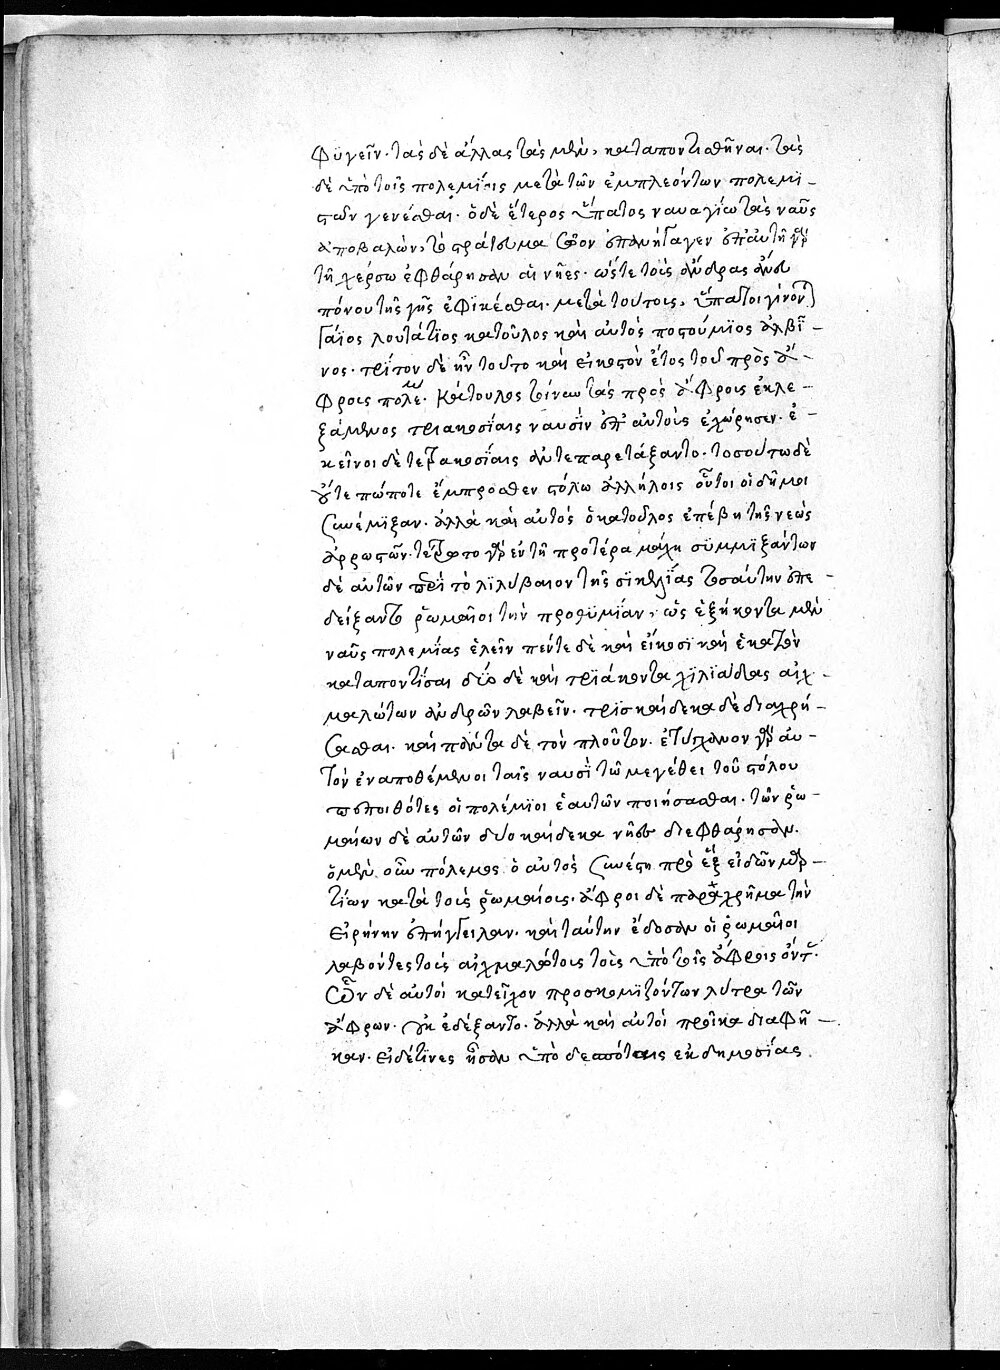 φϋγεῖν· τὰς δὲ ἄλλας τὰς μὲν, καταποντισθῆναι· τὰς
δὲ ὑπὸ τοῖς πολεμΐοις μετὰ τῶν ἐμπλεόντων πολεμϊ-
στῶν γενέσθαι· ὁ δὲ ἕτερος ὕπατος ναυαγίω τὰς ναῦς
ἀποβαλὼν, τὸ στράτευμα σῶον ἐπανήγαγεν ἐπ' αὐτῆ γὰρ
τῆ χέρσω ἐφθάρησαν αἱ νῆες· ὥστε τοὺς ἄνδρας ἄνευ
πόνου τῆς γῆς ἐφϊκέσθαι· μετὰ τούτοις, ὕπατοι γίνοντ
Γάϊος λουτάτϊος κατοῦλος καὶ αὐτὸς ποστούμϊος ἀλβῖ-
νος· τρίτον δὲ ἦν τοῦτο καὶ εἰκοστὸν ἔτος τοῦ πρὸς ἄ-
φροις πολε· Κάτουλος τοίνυν τὰς πρὸς ἄφροις ἐκλε-
ξάμενος τριακοσΐαις ναυσΐν ἐπ' αὐτοὺς ἐχώρησεν· ἐ-
κεῖνοι δὲ τετρακοσΐαις ἀντεπαρετάξαντο· τοσούτω δὲ
οὔτε πώποτε ἔμπροσθεν στόλω ἀλλήλοις οὗτοι οἱ δῆμοι
συνέμιξαν· ἀλλὰ καὶ αὐτὸς ὁ κατοῦλος ἐπέβη τῆς νεὼς
ἀρρωστῶν· τέτρωτο γὰρ ἐν τῆ προτέρα μάχη συμμϊξάντων
δὲ αὐτῶν περὶ τὸ λϊλύβαιον τῆς σϊκελΐας τοσαύτην ἐπε-
δείξαντο ῥωμαῖοι τὴν προθϋμίαν, ὡς ἑξήκοντα μὲν
ναῦς πολεμΐας ἑλεῖν πέντε δὲ καὶ εἴκοσϊ καὶ ἑκατὸν
καταποντΐσαι δύο δὲ καὶ τρϊάκοντα χϊλϊάδας αἰχ-
μαλώτων ἀνδρῶν λαβεῖν· τρὶσκαίδεκα δὲ διαχρή-
σασθαι· καὶ πολὺν δὲ τὸν πλοῦτον· ἐτύγχανον γὰρ αὐ-
τὸν ἐναποθέμενοι ταῖς ναυσὶ τῶ μεγέθει τοῦ στόλου
πεποιθότες οἱ πολέμϊοι ἑαυτῶν ποιήσασθαι· τῶν ῥω-
μαίων δὲ αὐτῶν δυοκαίδεκα νῆες διεφθάρησαν.
ὁ μὲν οὖν πόλεμος ὁ αὐτὸς συνέστη πρὸ ἓξ εἰδῶν μαρ-
τίων κατὰ τοὺς ῥωμαίοις· ἄφροι δὲ παραχρῆμα τὴν
εἰρήνην ἐπήγγειλαν· καὶ ταύτην ἔδοσαν οἱ ῥωμαῖοι
λαβόντες τοὺς αἰχμαλώτοις τοὺς ὑπὸ τοῖς ἄφροις ὄντ·
ὧν δὲ αὐτοὶ κατεῖχον προσκομϊζόντων λύτρα τῶν
ἄφρων· οὐκ ἐδέξαντο· ἀλλὰ καὶ αὐτοὶ προῖκα διαφῆ-
καν· εἰ δέ τϊνες ἦσαν ὑπὸ δεσπόταις ἐκ δημοσΐας.